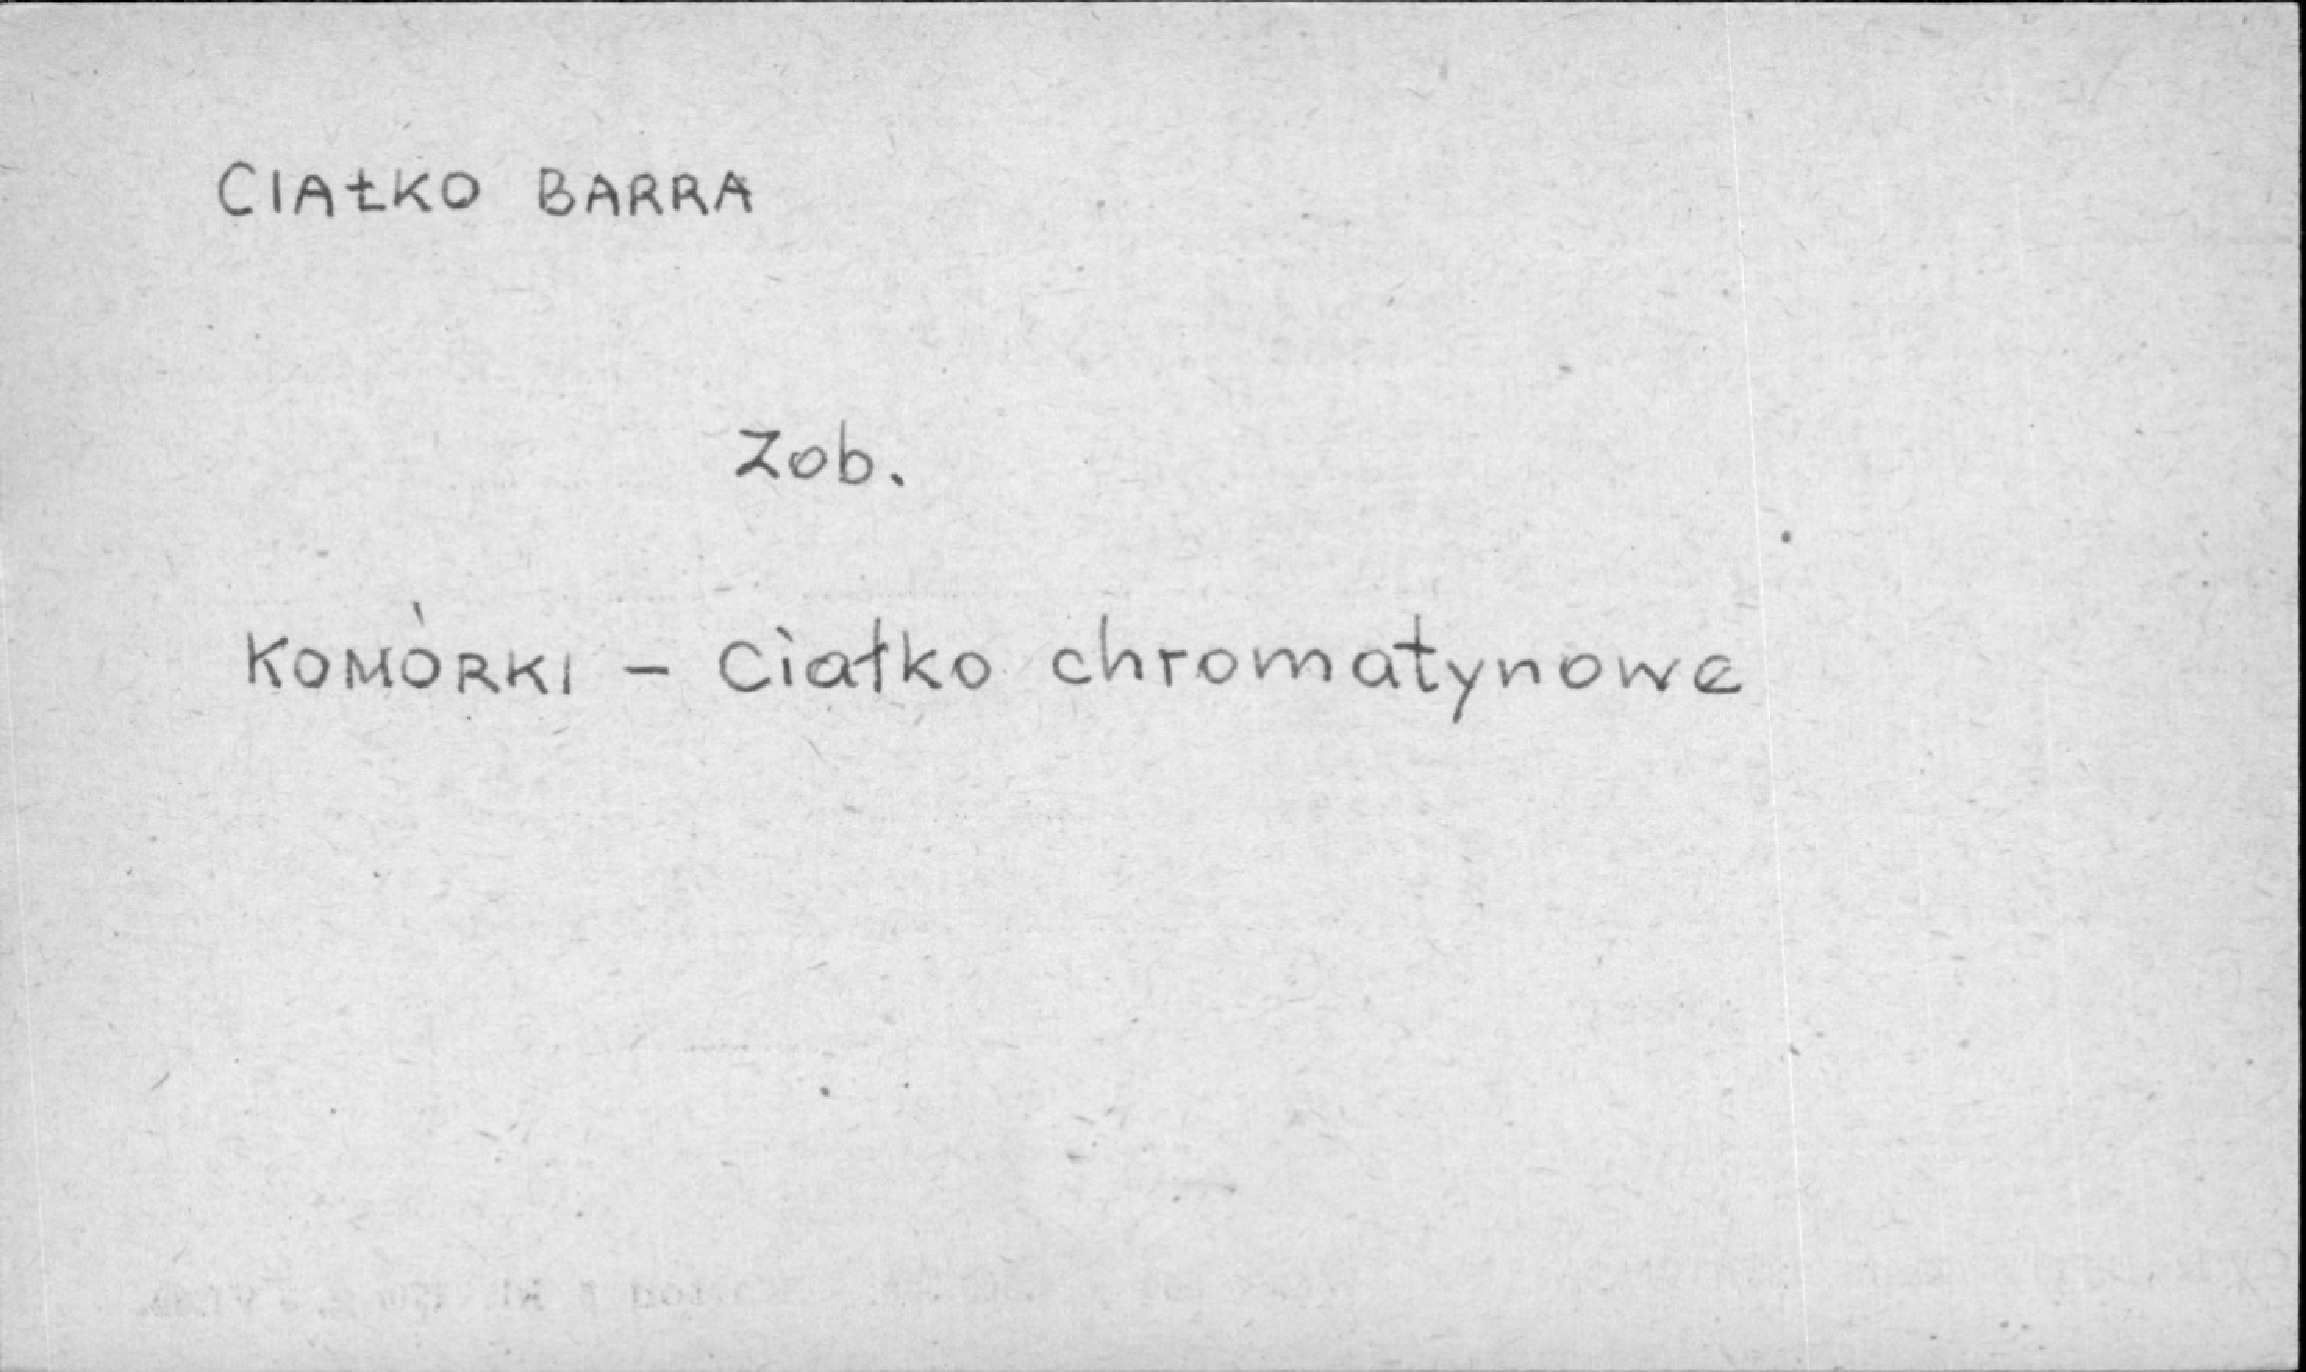 CIAŁKO BARRA
Zob.
KOMÓRKI – Ciałko chromatynowe